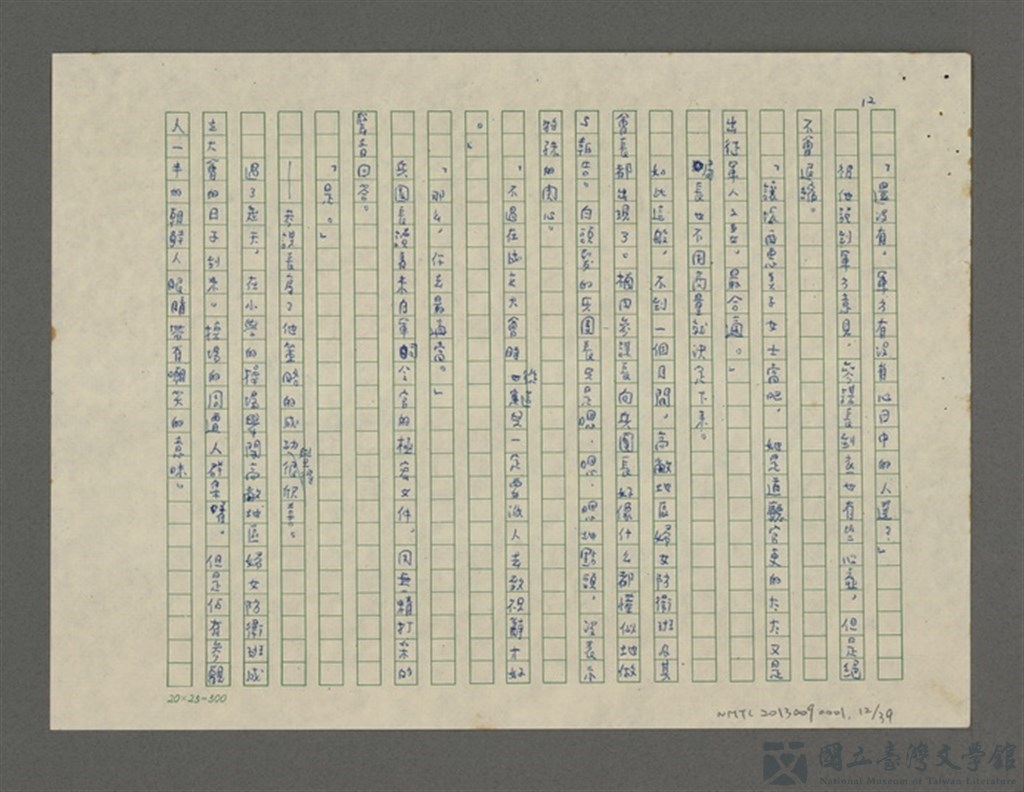 12
「還沒有。軍ㄗ有沒有心目中的人選？」
被他說到軍ㄗ意見，參謀長到底也有些心虛，但是絕
不會退縮。
「讓 惠美子女士當吧。她是道廳官吏的太太又是
出征軍人之妻，最合適。」
婦長也不用商量就決定下來。
如此這般，不到一個月間，高敞地區婦女防衛班及其
會長都出現了。植田參謀長向兵團長好像什么都懂似地做
了報告。白頭髮的兵團長只是嗯、嗯、嗯地點頭。沒表示
特殊的關心。
「不過在成立大會時 從這 一定要派人去致祝辭才好
。」
「那么，你去最適當。」
兵團長邊看來自軍的公宮的極密文件，同無精打采的
聲音回答。
「是。」
——參謀長為了他策略的成功 覺得 很欣喜。
過了幾天，在小學的操場舉開高敞地區婦女防衛班成
立大會的日子到來。操場的周圍人群 著。但是仍有參觀
人一半的朝鮮人眼睛帶有嘲笑的意味。
20×25=500
NMTL 20130090001. 12/39
國立臺灣文學館
National Museum of Taiwan Literature